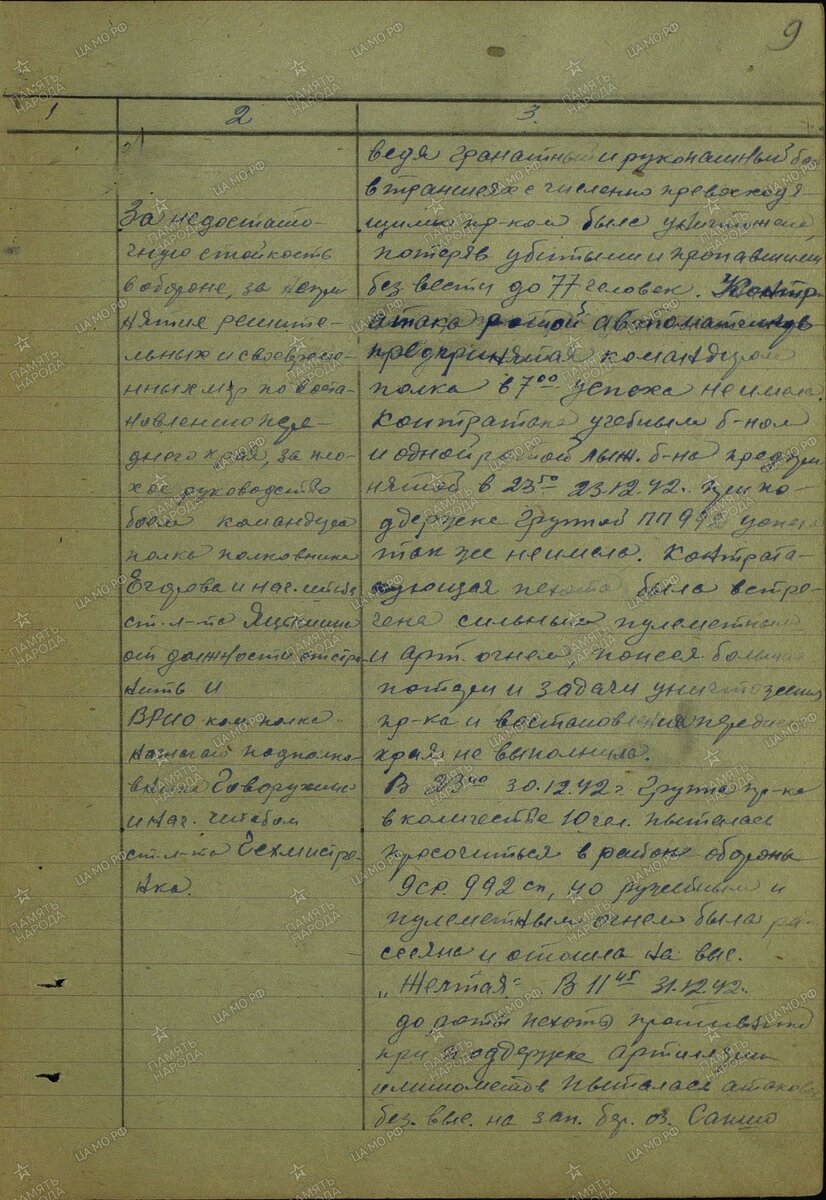 9
1 2 3.
За недостато-
чную стойкость
в обороне, за непри
нятие решите-
льных и своевреме-
нных мер по воста-
новлению пере-
днего края, за пло-
хое руководство
боем командира
полка полковника
Егорова и нач. штаба
ст. л-та
от должности отстра
нить и
ВРИО ком. полка
назначаю подполко-
вника Говорухина
и нач. штабом
ст. л-та
ведя гранатный и рукопашный бой
в траншеях с численно превосходя-
щимися пр-ком была уничтожена,
потеряв убитыми и пропавшими
без вести до 77 человек. Контр-
атака ротой автоматчиков
предпринятая командиром
полка в 7⁰⁰ успеха не имела.
Контратака учебным б-ном
и одной ротой лыж. б-на предпри
нятой в 23⁵⁰ 23.12.42. при по-
ддержке группой ПП 992 успеха
так же не имела. Контрата-
кующая пехота была встре-
чена сильным пулеметным
и арт. огнем, понеся большие
потери и задачи уничтожения
пр-ка и востановления переднего
края не выполнила.
В 23⁴⁰ 30.12.42 г группа пр-ка
в количестве 10 чел. пыталась
просочиться в районе обороны
9 ср. 992 сп, но ружейным и
пулеметным огнем была ра-
ссеяна и отошла на выс.
„Желтая“ В 11⁴⁵ 31.12.42.
до роты пехоты противника
при поддержке артилерии
и минометов пыталась атакова
без. выс. на зап. бер. оз.
ПАМЯТЬ НАРОДА
ЦАМО.РФ